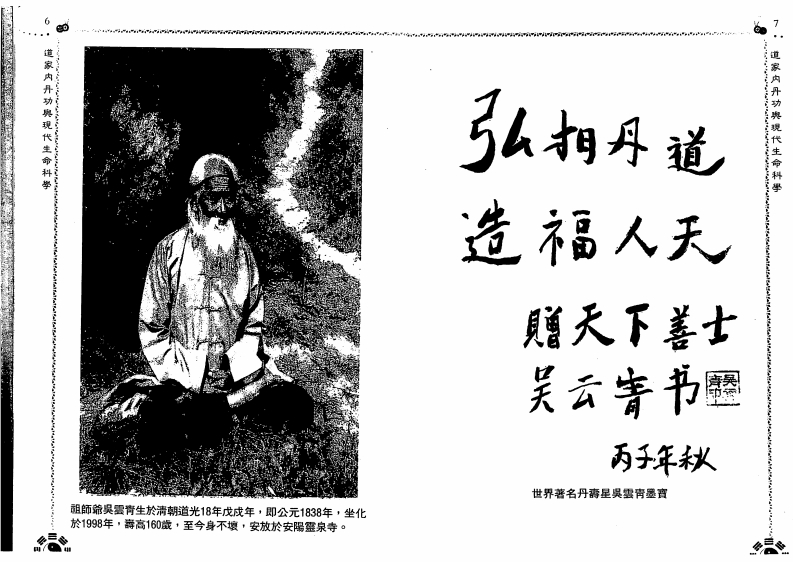 6
道家內丹功與現代生命科學
祖師爺吳雲青生於清朝道光18年戊戌年，即公元1838年，坐化
於1998年，壽高160歲，至今身不壞，安放於安陽靈泉寺。
7
道家內丹功與現代生命科學
弘揚丹道
造福人天
贈天下善士
吴云青书
丙子年秋
世界著名丹壽星吳雲青墨寶